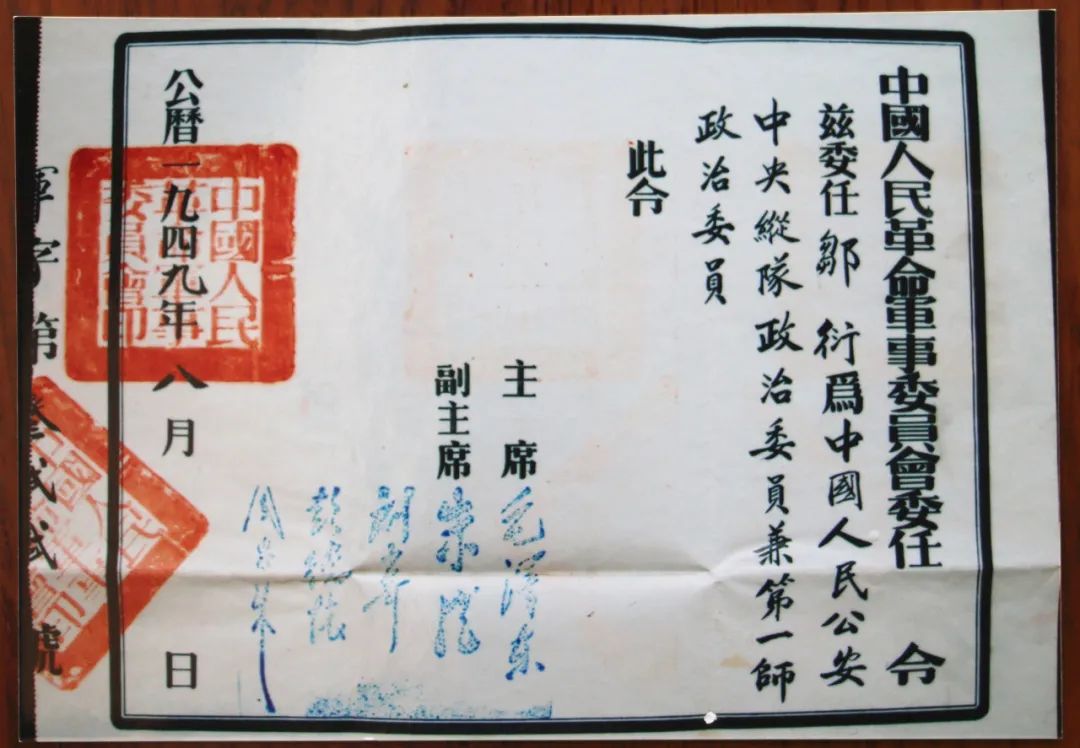 中國人民革命軍事委員會委任令
兹委任鄒衍爲中國人民公安
中央縱隊政治委員兼第一師
政治委員
此令
主席 毛澤東
副主席 朱德
劉少奇
彭德懷
周恩來
公曆一九四九年八月 日
中國人民
革命軍事
委員會印
軍字第叁貳貳號